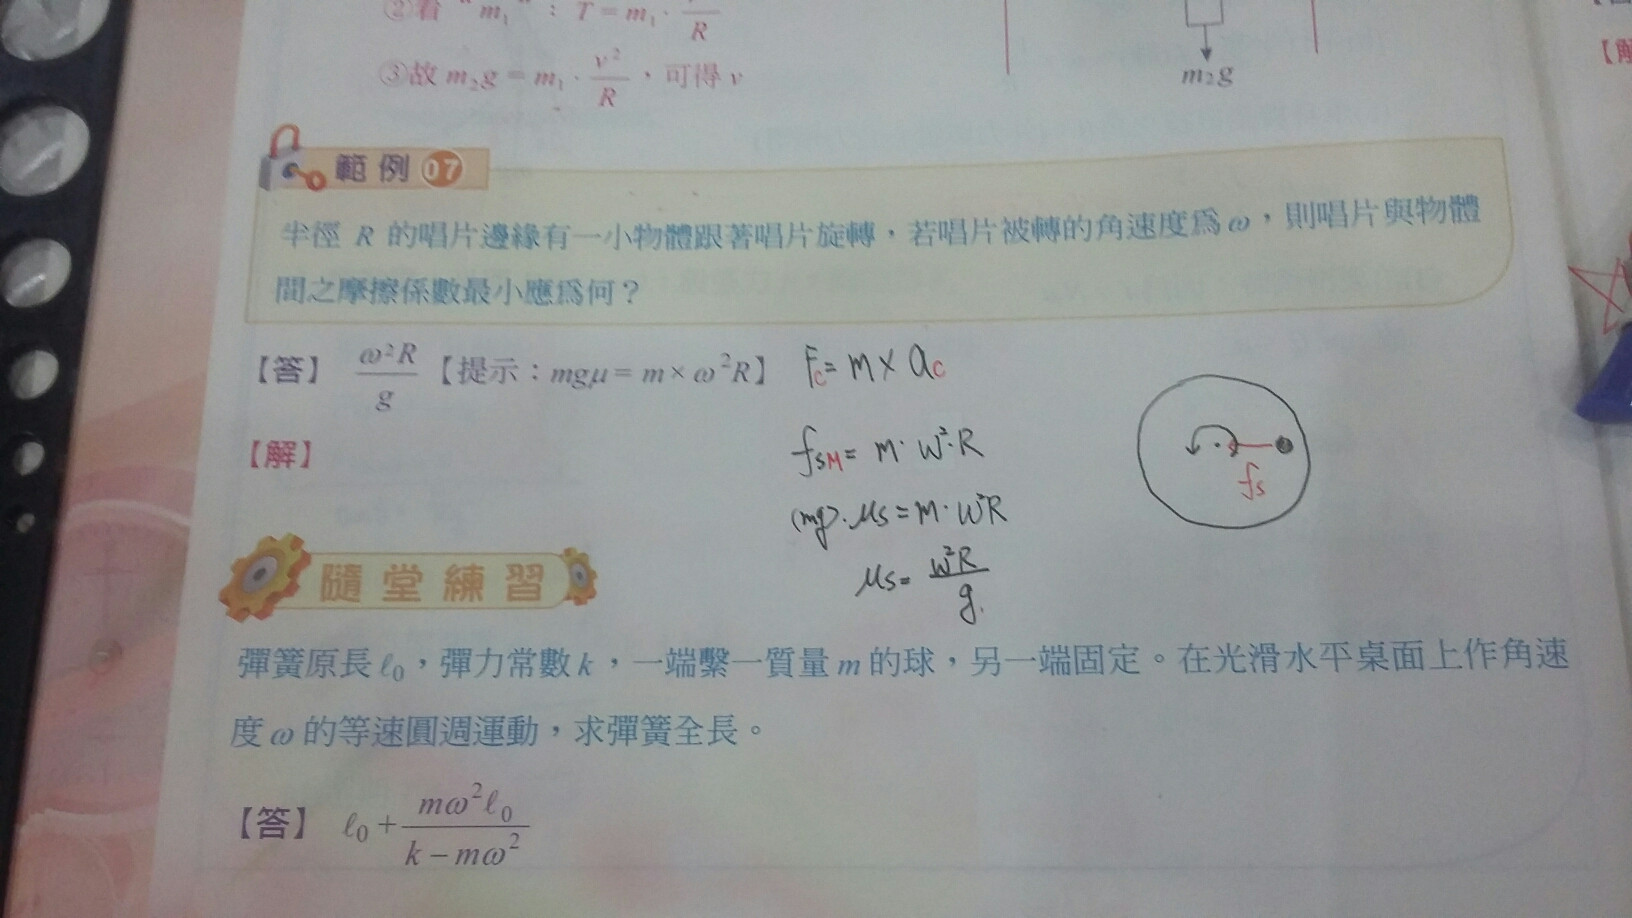 ②看“m₁”：T=m₁·v²/R
③故 m₂g = m₁·v²/R，可得 v
m₂g
範例 07
半徑 R 的唱片邊緣有一小物體跟著唱片旋轉，若唱片被轉的角速度爲 ω，則唱片與物體
間之摩擦係數最小應爲何？
【答】 ω²R/g 【提示：mgμ = m × ω²R】
Fc = m × ac
【解】
fsM = m · w² · R
(mg) · μs = m · w²R
μs = w²R/g
fs
隨堂練習
彈簧原長 ℓ₀，彈力常數 k，一端繫一質量 m 的球，另一端固定。在光滑水平桌面上作角速
度 ω 的等速圓週運動，求彈簧全長。
【答】 ℓ₀ + mω²ℓ₀/(k − mω²)